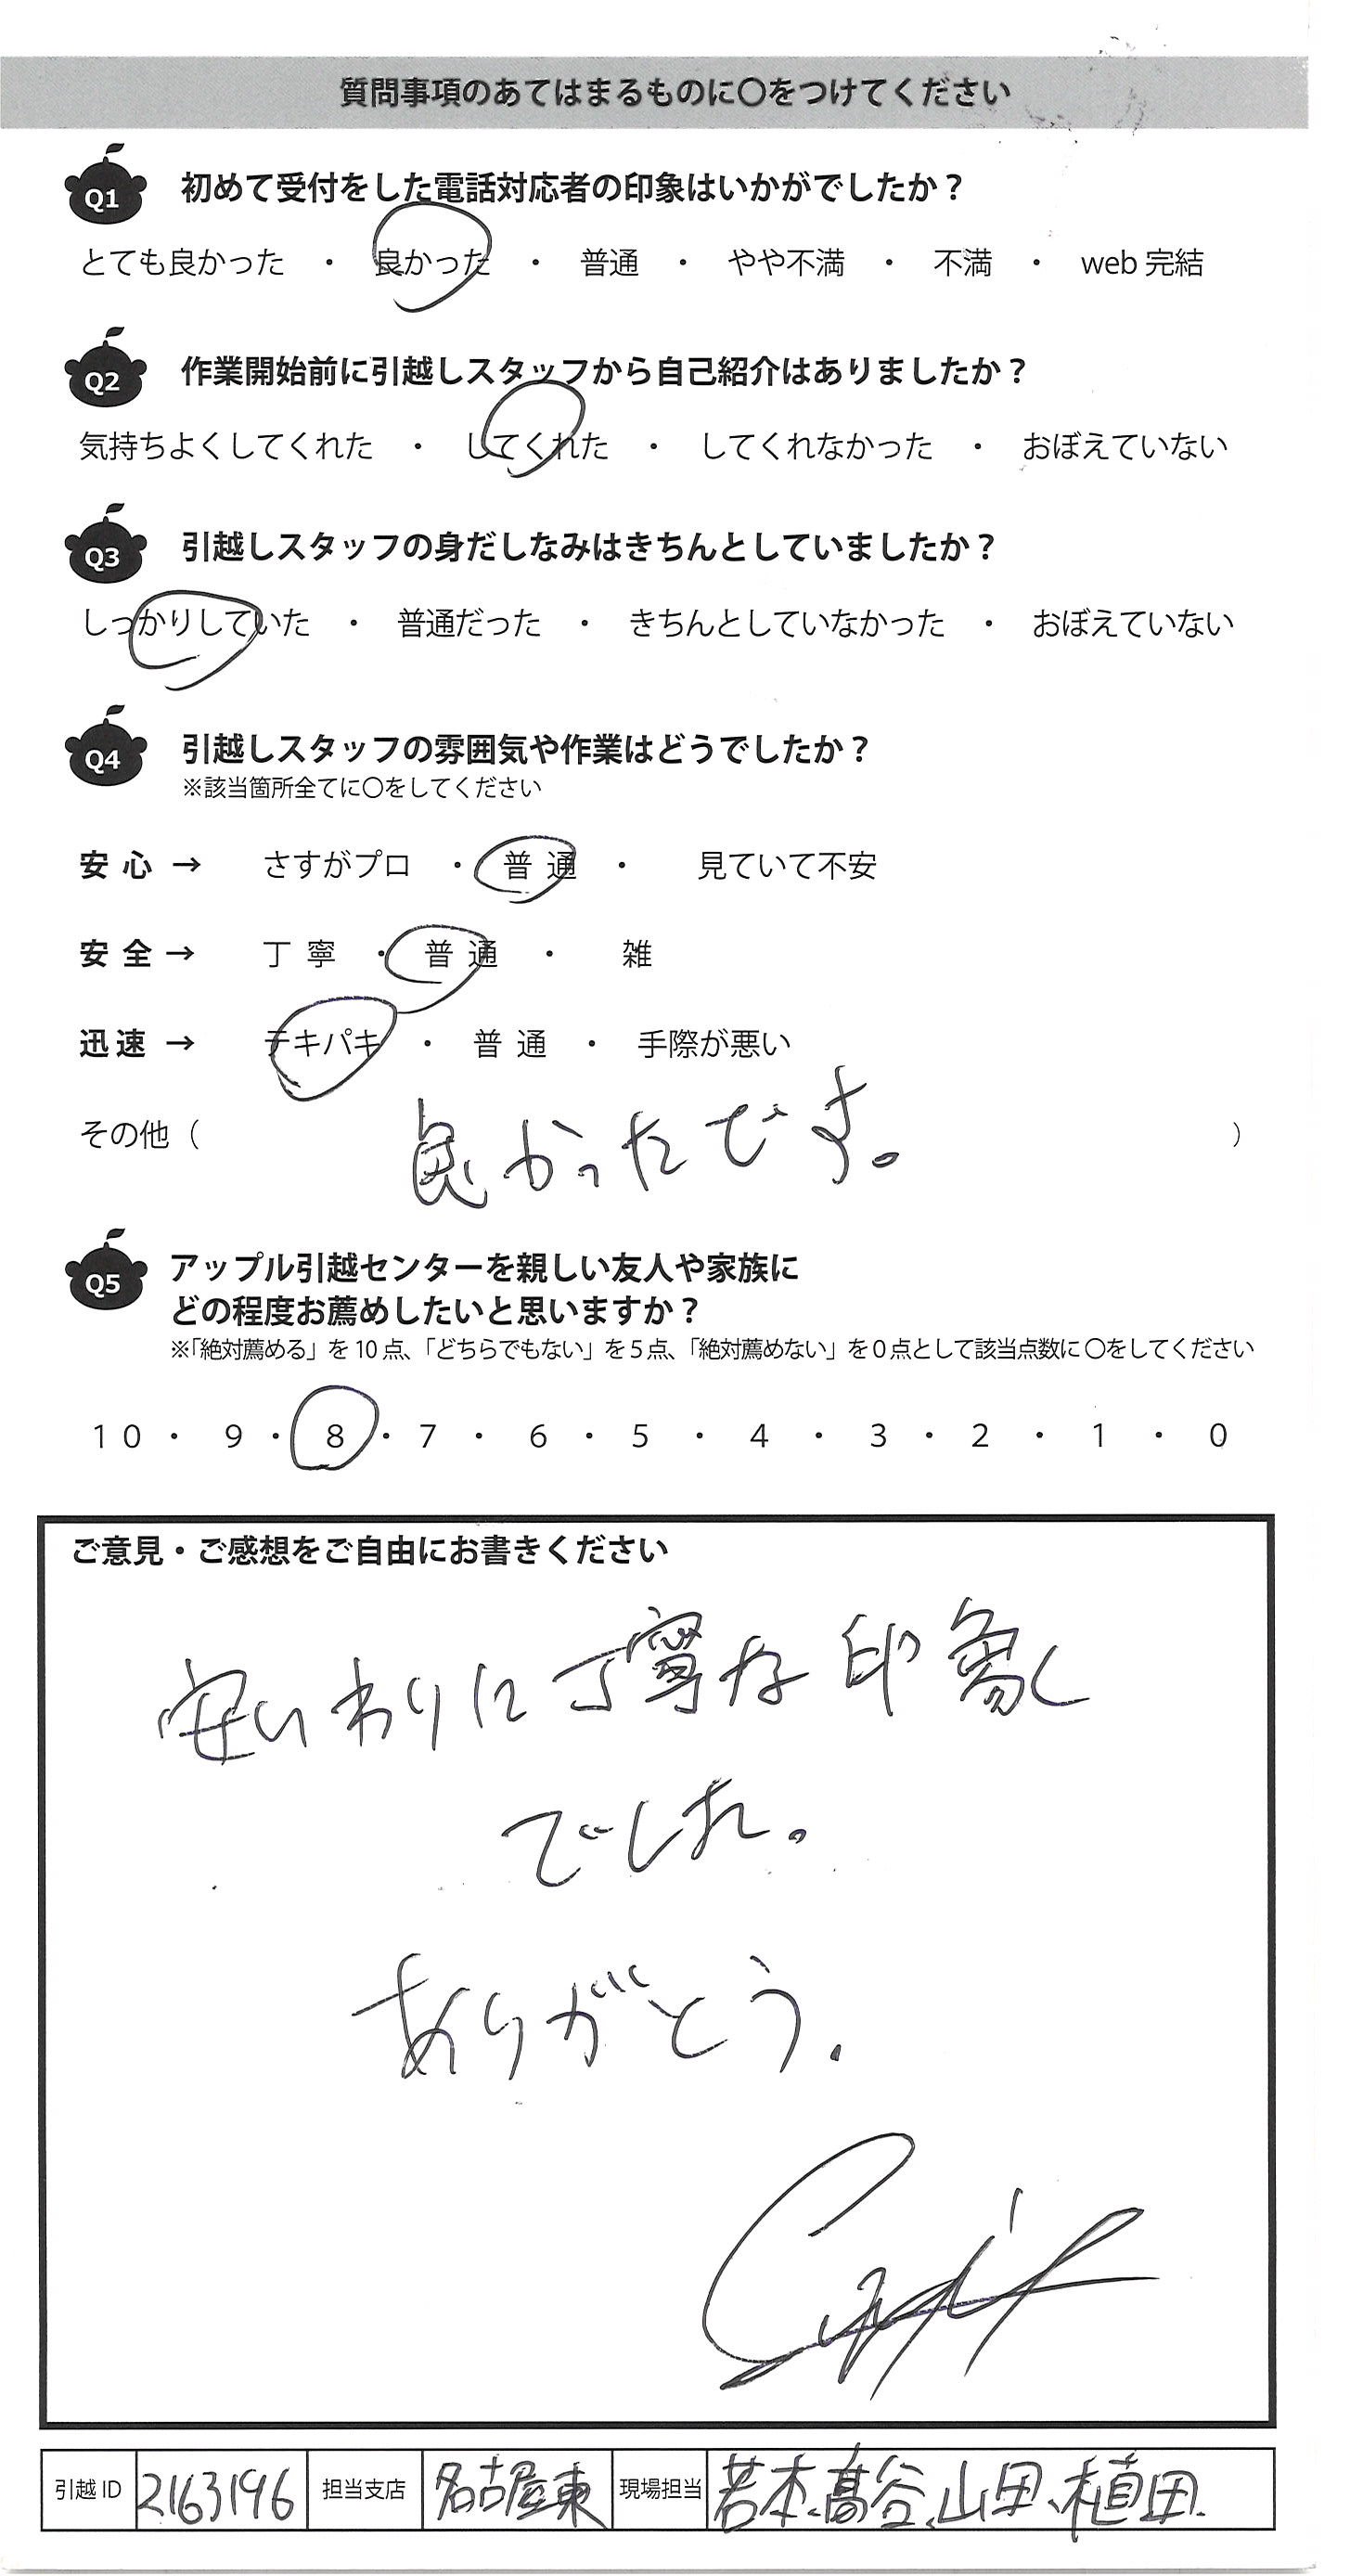 質問事項のあてはまるものに〇をつけてください
Q1 初めて受付をした電話対応者の印象はいかがでしたか？
とても良かった ・ 良かった ・ 普通 ・ やや不満 ・ 不満 ・ web完結
Q2 作業開始前に引越しスタッフから自己紹介はありましたか？
気持ちよくしてくれた ・ してくれた ・ してくれなかった ・ おぼえていない
Q3 引越しスタッフの身だしなみはきちんとしていましたか？
しっかりしていた ・ 普通だった ・ きちんとしていなかった ・ おぼえていない
Q4 引越しスタッフの雰囲気や作業はどうでしたか？
※該当箇所全てに〇をしてください
安心 → さすがプロ ・ 普通 ・ 見ていて不安
安全 → 丁寧 ・ 普通 ・ 雑
迅速 → テキパキ ・ 普通 ・ 手際が悪い
その他（ 良かったです。 ）
Q5 アップル引越センターを親しい友人や家族に
どの程度お薦めしたいと思いますか？
※「絶対薦める」を10点、「どちらでもない」を5点、「絶対薦めない」を0点として該当点数に〇をしてください
10 ・ 9 ・ 8 ・ 7 ・ 6 ・ 5 ・ 4 ・ 3 ・ 2 ・ 1 ・ 0
ご意見・ご感想をご自由にお書きください
安いわりに丁寧な印象
でした。
ありがとう.
引越ID 2163196 担当支店 名古屋東 現場担当 若本、髙谷、山田、植田.